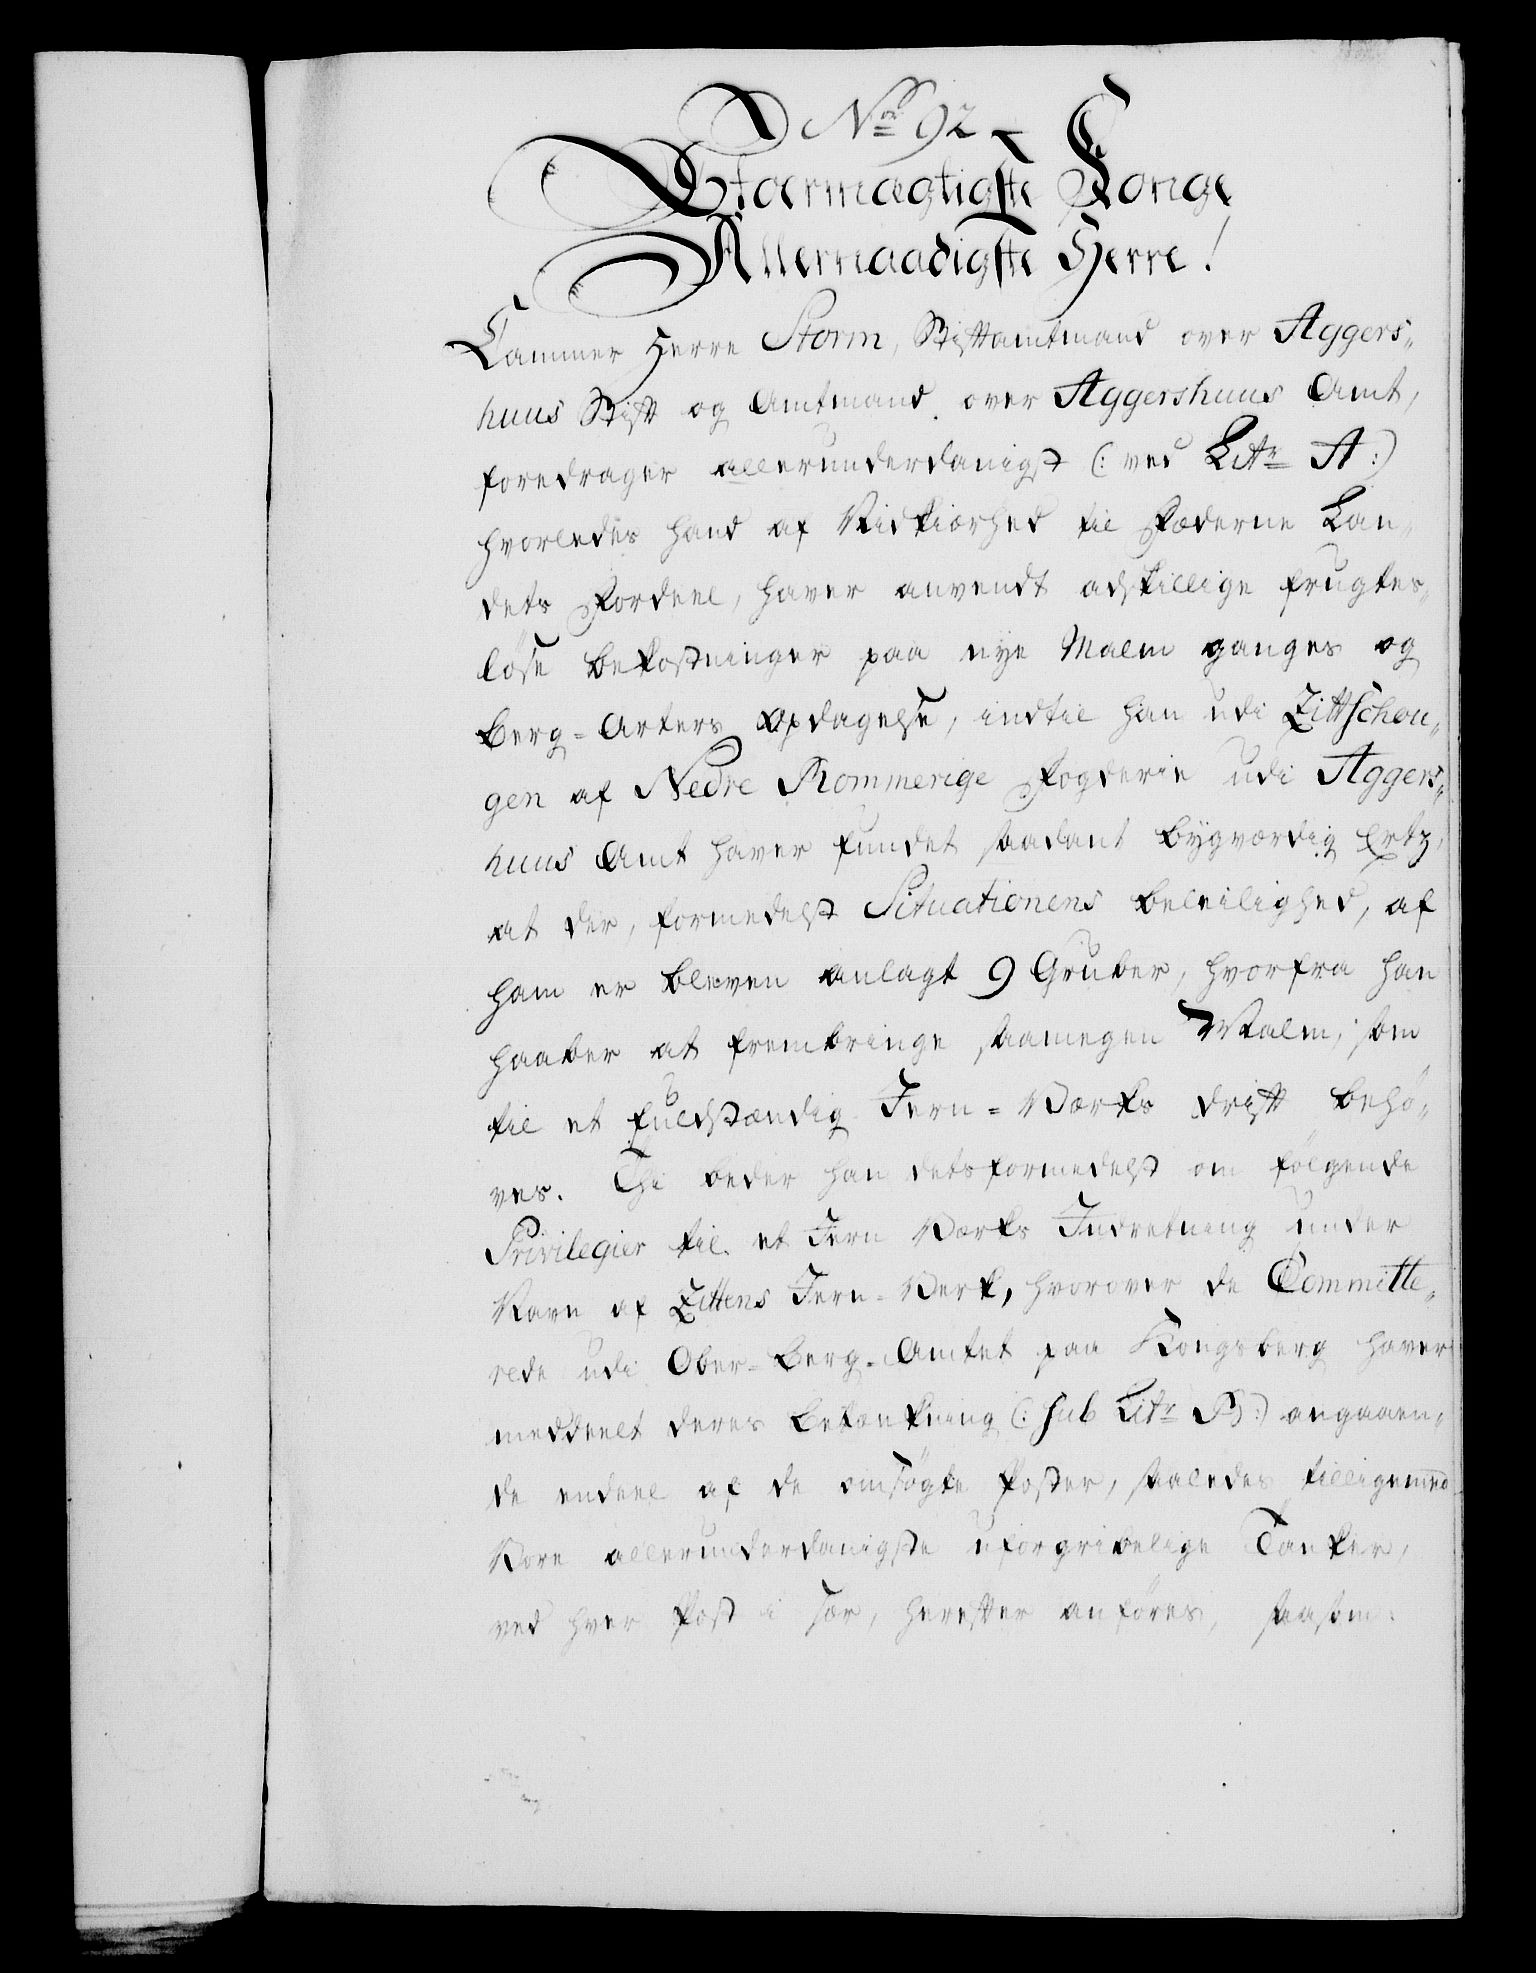 No 92
Stormægtigste Konge
Allernaadigste Herre!
Cammer Herre Storm, Stiftamtmand over Aggers„
huus Stift og Amtmand over Aggershuus Amt,
foredrager allerunderdanigst (: ved Litr A:)
hvorledes hand af Nidkiærhed til Fæderne Lan„
dets Fordeel, haver anvendt adskillige frugtes„
löse bekostninger paa nye Malm ganges og
berg-Arters Opdagelse, indtil han udi Zittschou„
gen af Nedre Rommerige Fogderie udi Aggers„
huus Amt haver fundet saadant bygværdig Ertz,
at der, formedelst Situationens beleilighed, af
ham er bleven anlagt 9 Gruber, hvorfra han
haaber at frembringe saamegen Malm, som
til et fuldstændig Jern-Værks drift behö„
ves. Thi beder han detsformedelst om følgende
Privilegier til et Jern Værks Indretning under
Navn af Zittens Jern-Verk, hvorover de Committe„
rede udi Ober-berg-Amtet paa Kongsberg haver
meddeelt deres betænkning (: sub Litr B:) angaaen„
de endeel af de omsögte Poster, saaledes tilligemed
Vore allerunderdanigste uforgribelige Tanker,
ved hver Post i sær, herefter anföres, saasom: